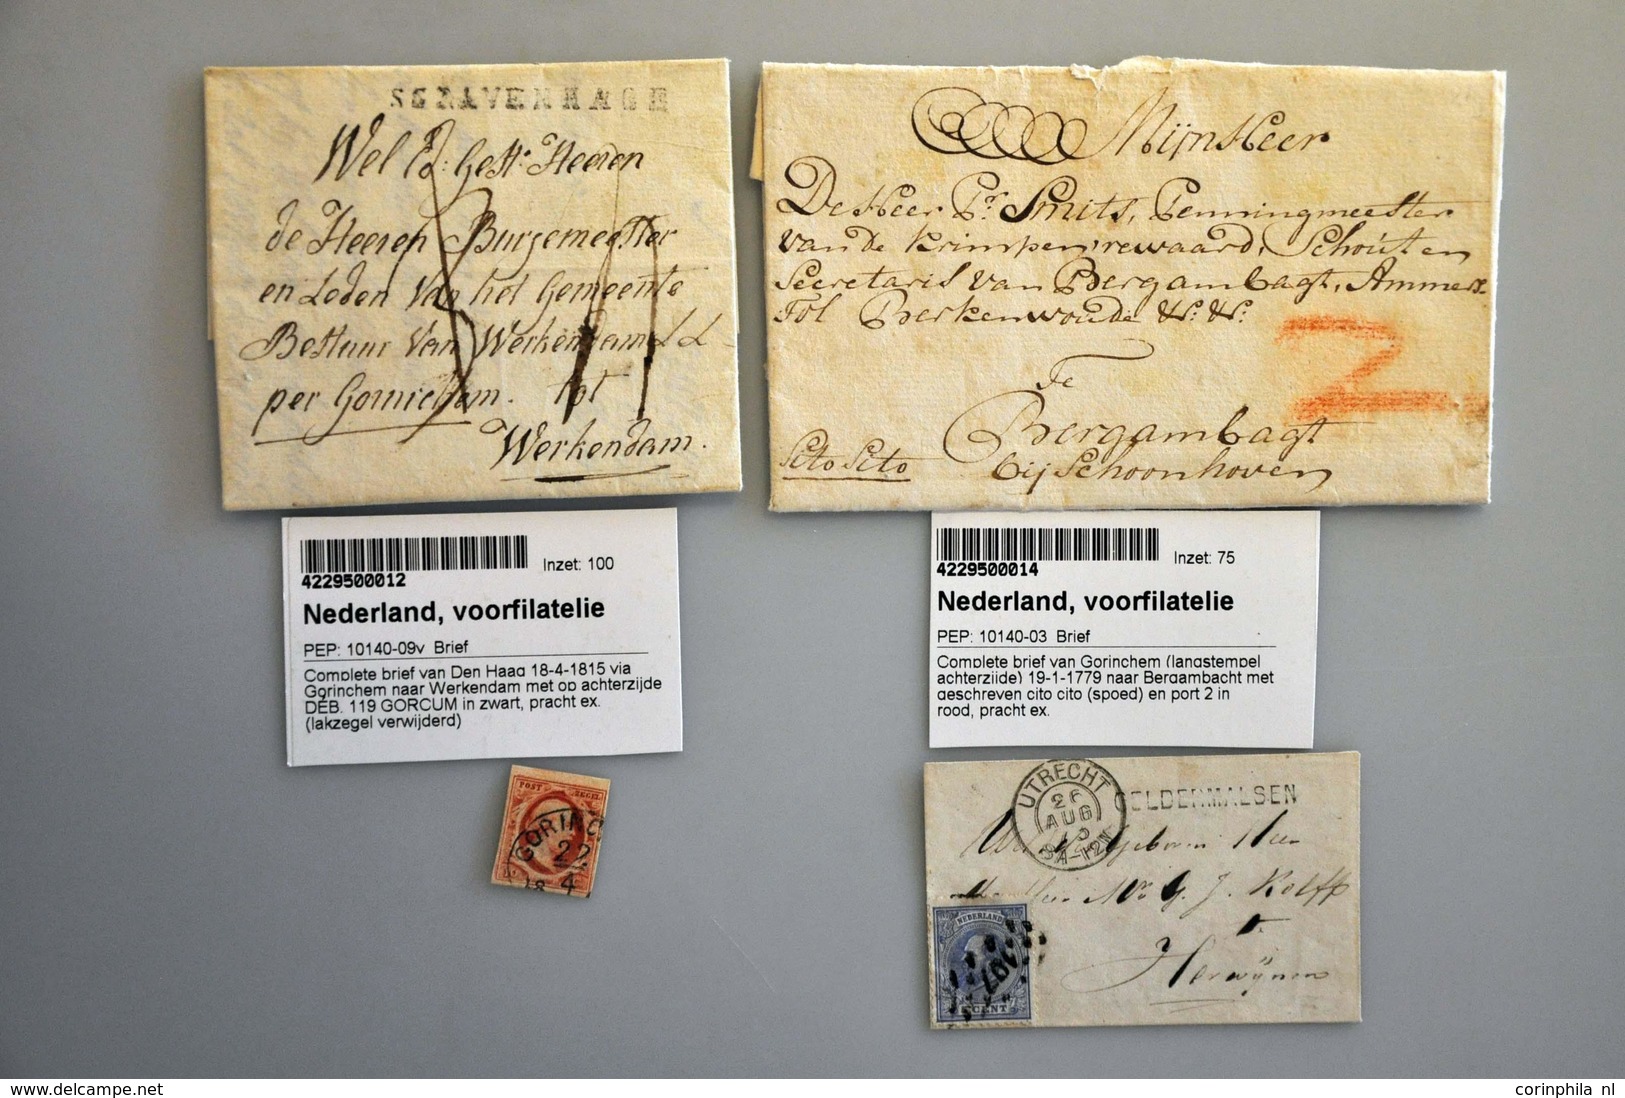 SGRAVENHAGE
Wel Ed: Gestr. Heeren
de Heeren Burgemeester
en Leden Van het Gemeente
Bestuur Van Werkendam
per Gornichem. tot
Werkendam.
MijnHeer
De Heer Pr. Smits, Penningmeester
van de Krimpenrewaard, Schout en
Secretaris van Bergambagt, Ammers
Tol Berkenwoude &c. &c.
Te
Bergambagt
bij Schoonhoven
Cito Cito
2
4229500012
Inzet: 100
Nederland, voorfilatelie
PEP: 10140-09v Brief
Complete brief van Den Haag 18-4-1815 via
Gorinchem naar Werkendam met op achterzijde
DEB. 119 GORCUM in zwart, pracht ex.
(lakzegel verwijderd)
4229500014
Inzet: 75
Nederland, voorfilatelie
PEP: 10140-03 Brief
Complete brief van Gorinchem (langstempel
achterzijde) 19-1-1779 naar Bergambacht met
geschreven cito cito (spoed) en port 2 in
rood, pracht ex.
POST ZEGEL
GORINC
22
4
UTRECHT
26
AUG
75
9-12N
GELDERMALSEN
Heer
Mr. G. J. Kolff
te
Herwijnen
NEDERLAND
107
CENT
www.delcampe.net
corinphila nl